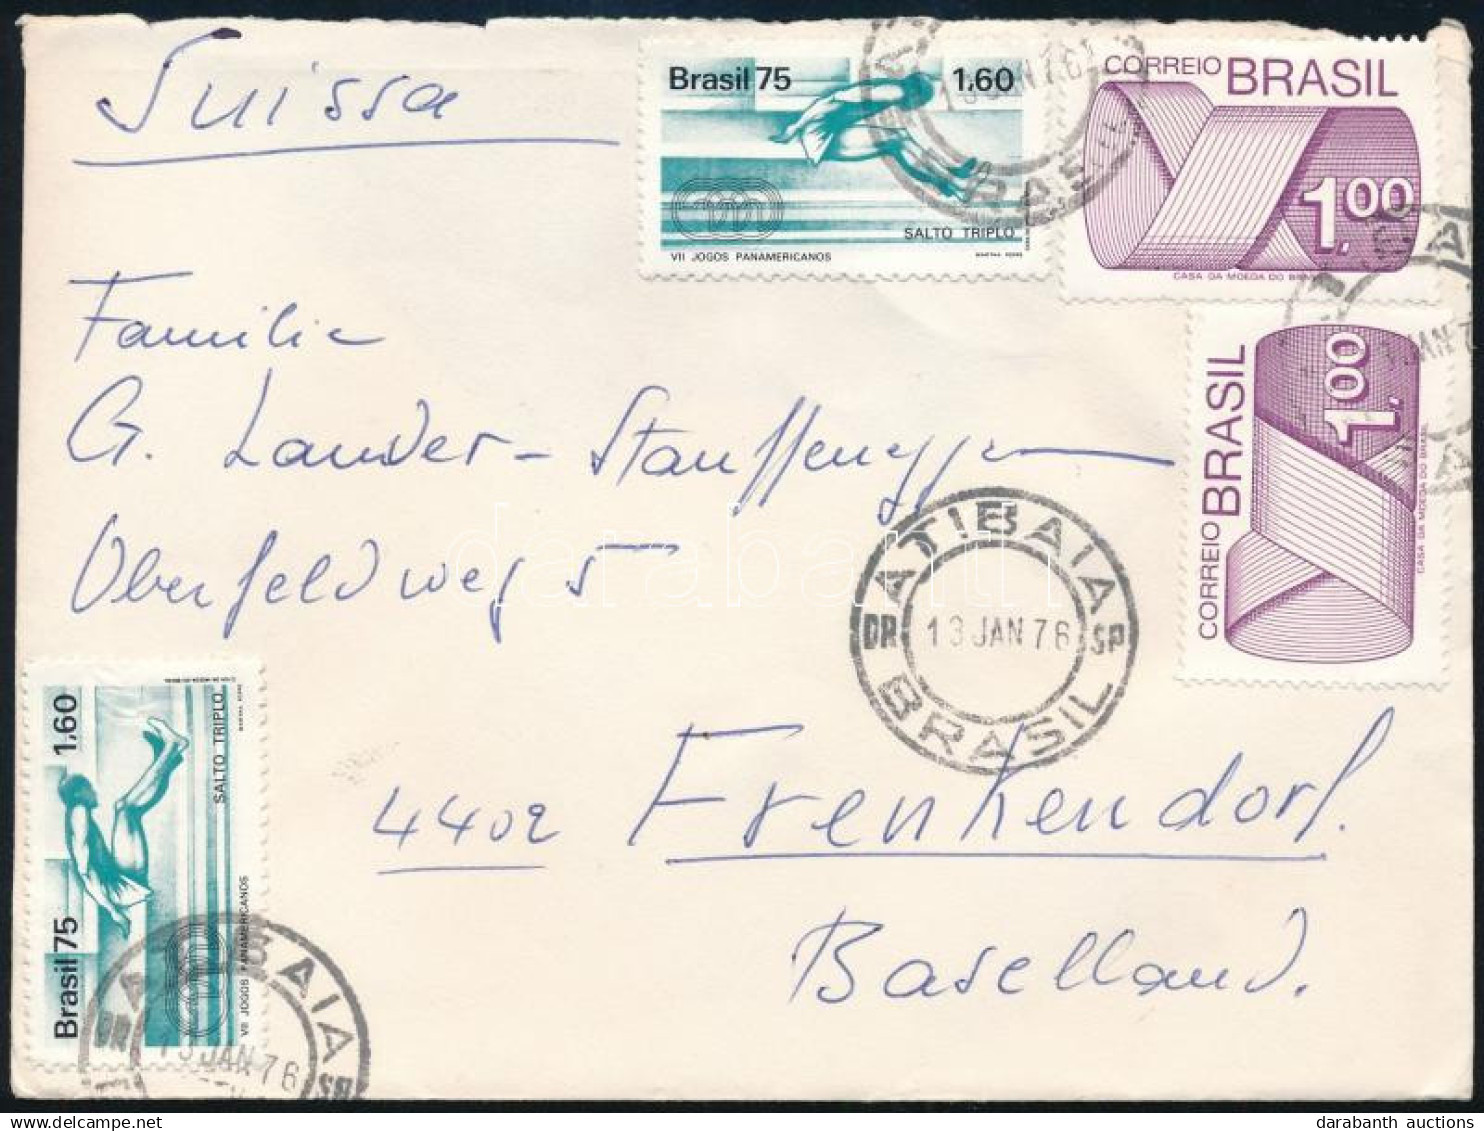 Suissa
Brasil 75 1,60
SALTO TRIPLO
VII JOGOS PANAMERICANOS
13 JAN 76
BRASIL
CORREIO BRASIL
1,00
CASA DA MOEDA DO BRASIL
CORREIO BRASIL
1,00
CASA DA MOEDA DO BRASIL
JAN 7
Familie
G. Lander-Stauffenegger
Oberfeldweg 5
ATIBAIA
DR 13 JAN 76 SP
BRASIL
4402 Frenkendorf.
Baselland.
Brasil 75 1,60
SALTO TRIPLO
VII JOGOS PANAMERICANOS
ATIBAIA
DR 13 JAN 76 SP
darabanth
darabanth auctions